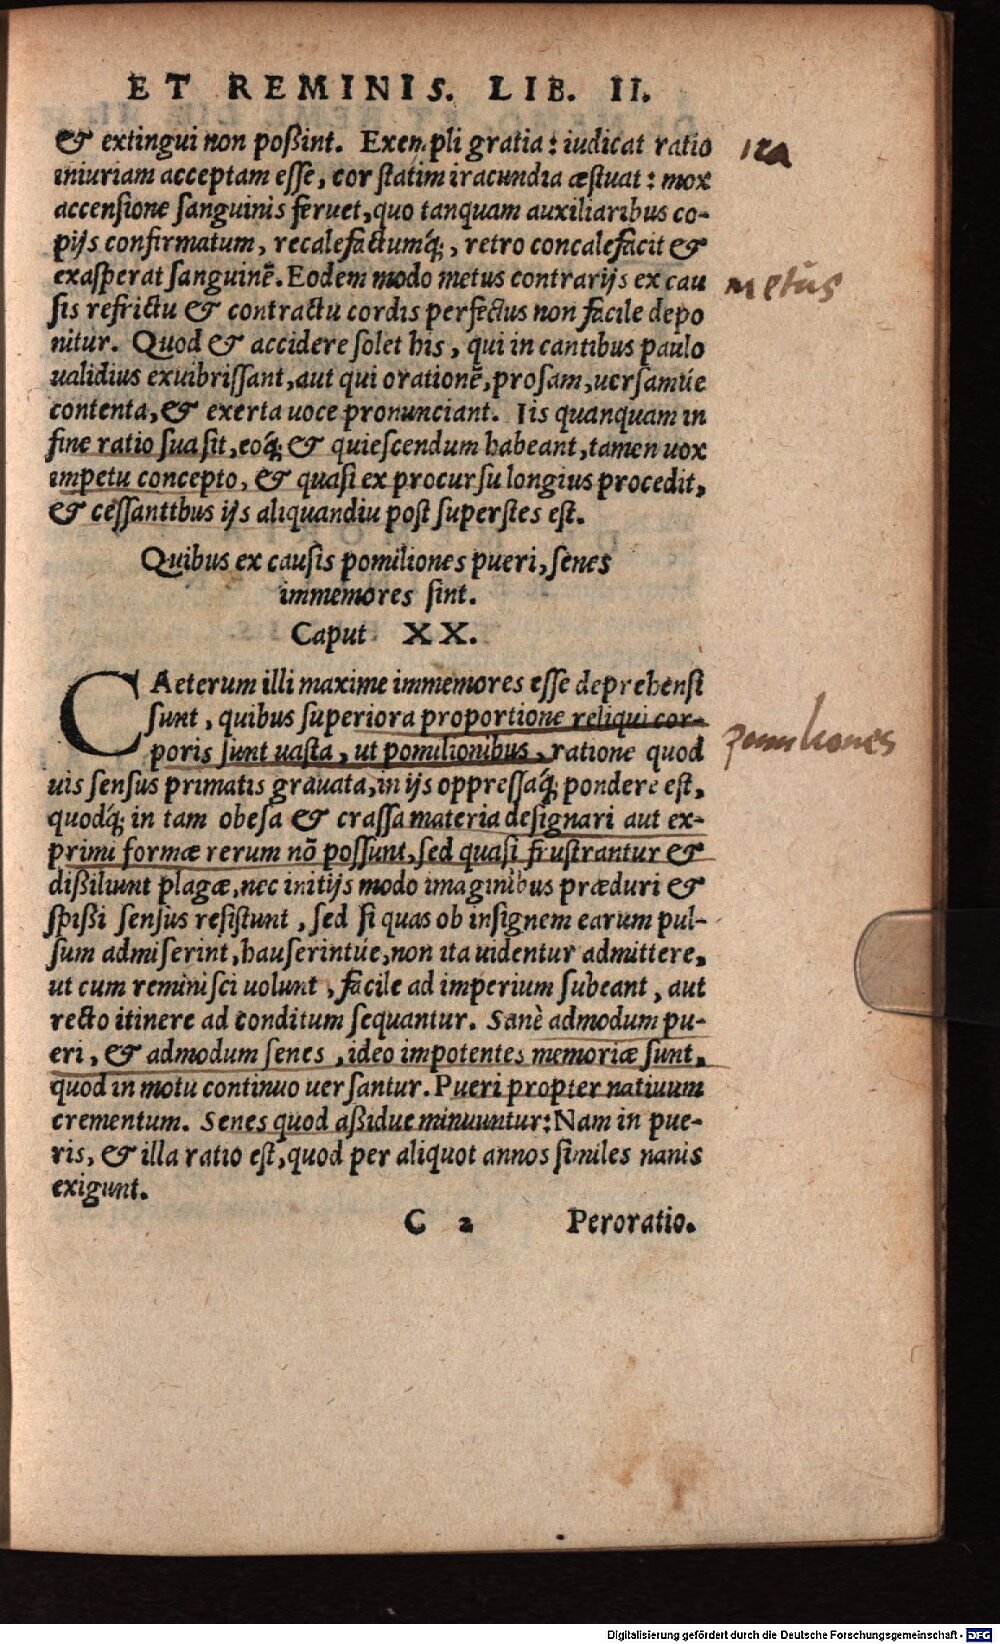 ET REMINIS. LIB. II.
& extingui non poßint. Exempli gratia: iudicat ratio
iniuriam acceptam esse, cor statim iracundia æstuat: mox
accensione sanguinis feruet, quo tanquam auxiliaribus co-
pijs confirmatum, recalefactumq́;, retro concalefacit &
exasperat sanguinẽ. Eodem modo metus contrarijs ex cau
sis refrictu & contractu cordis perfectus non facile depo
nitur. Quod & accidere solet his, qui in cantibus paulo
ualidius exuibrissant, aut qui orationẽ, prosam, uersamúe
contenta, & exerta uoce pronunciant. Iis quanquam in
fine ratio sua sit, eoq́; & quiescendum habeant, tamen uox
impetu concepto, & quasi ex procursu longius procedit,
& cessantibus ijs aliquandiu post superstes est.
Quibus ex causis pomiliones pueri, senes
immemores sint.
Caput XX.
CAeterum illi maxime immemores esse deprehensi
sunt, quibus superiora proportione reliqui cor-
poris sunt uasta, ut pomilionibus, ratione quod
uis sensus primatis grauata, in ijs oppressaq́; pondere est,
quodq́; in tam obesa & crassa materia designari aut ex-
primi formæ rerum nõ possunt, sed quasi frustrantur &
dißiliunt plagæ, nec initijs modo imaginibus præduri &
spißi sensus resistunt, sed si quas ob insignem earum pul-
sum admiserint, hauserintúe, non ita uidentur admittere,
ut cum reminisci uolunt, facile ad imperium subeant, aut
recto itinere ad conditum sequantur. Sanè admodum pu-
eri, & admodum senes, ideo impotentes memoriæ sunt,
quod in motu continuo uersantur. Pueri propter natiuum
crementum. Senes quod aßidue minuuntur: Nam in pue-
ris, & illa ratio est, quod per aliquot annos similes nanis
exigunt.
C 2 Peroratio.
ira
metus
pomiliones
Digitalisierung gefördert durch die Deutsche Forschungsgemeinschaft - DFG